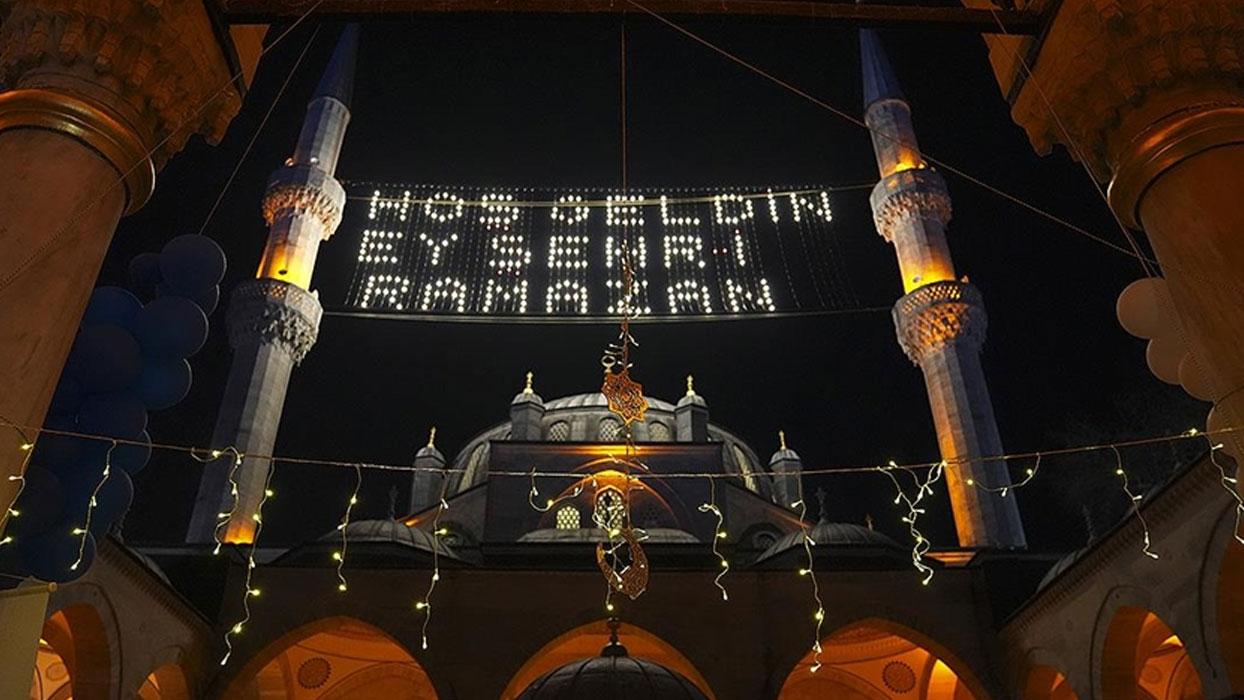 HOŞ GELDİN
EY ŞEHR-İ
RAMAZAN